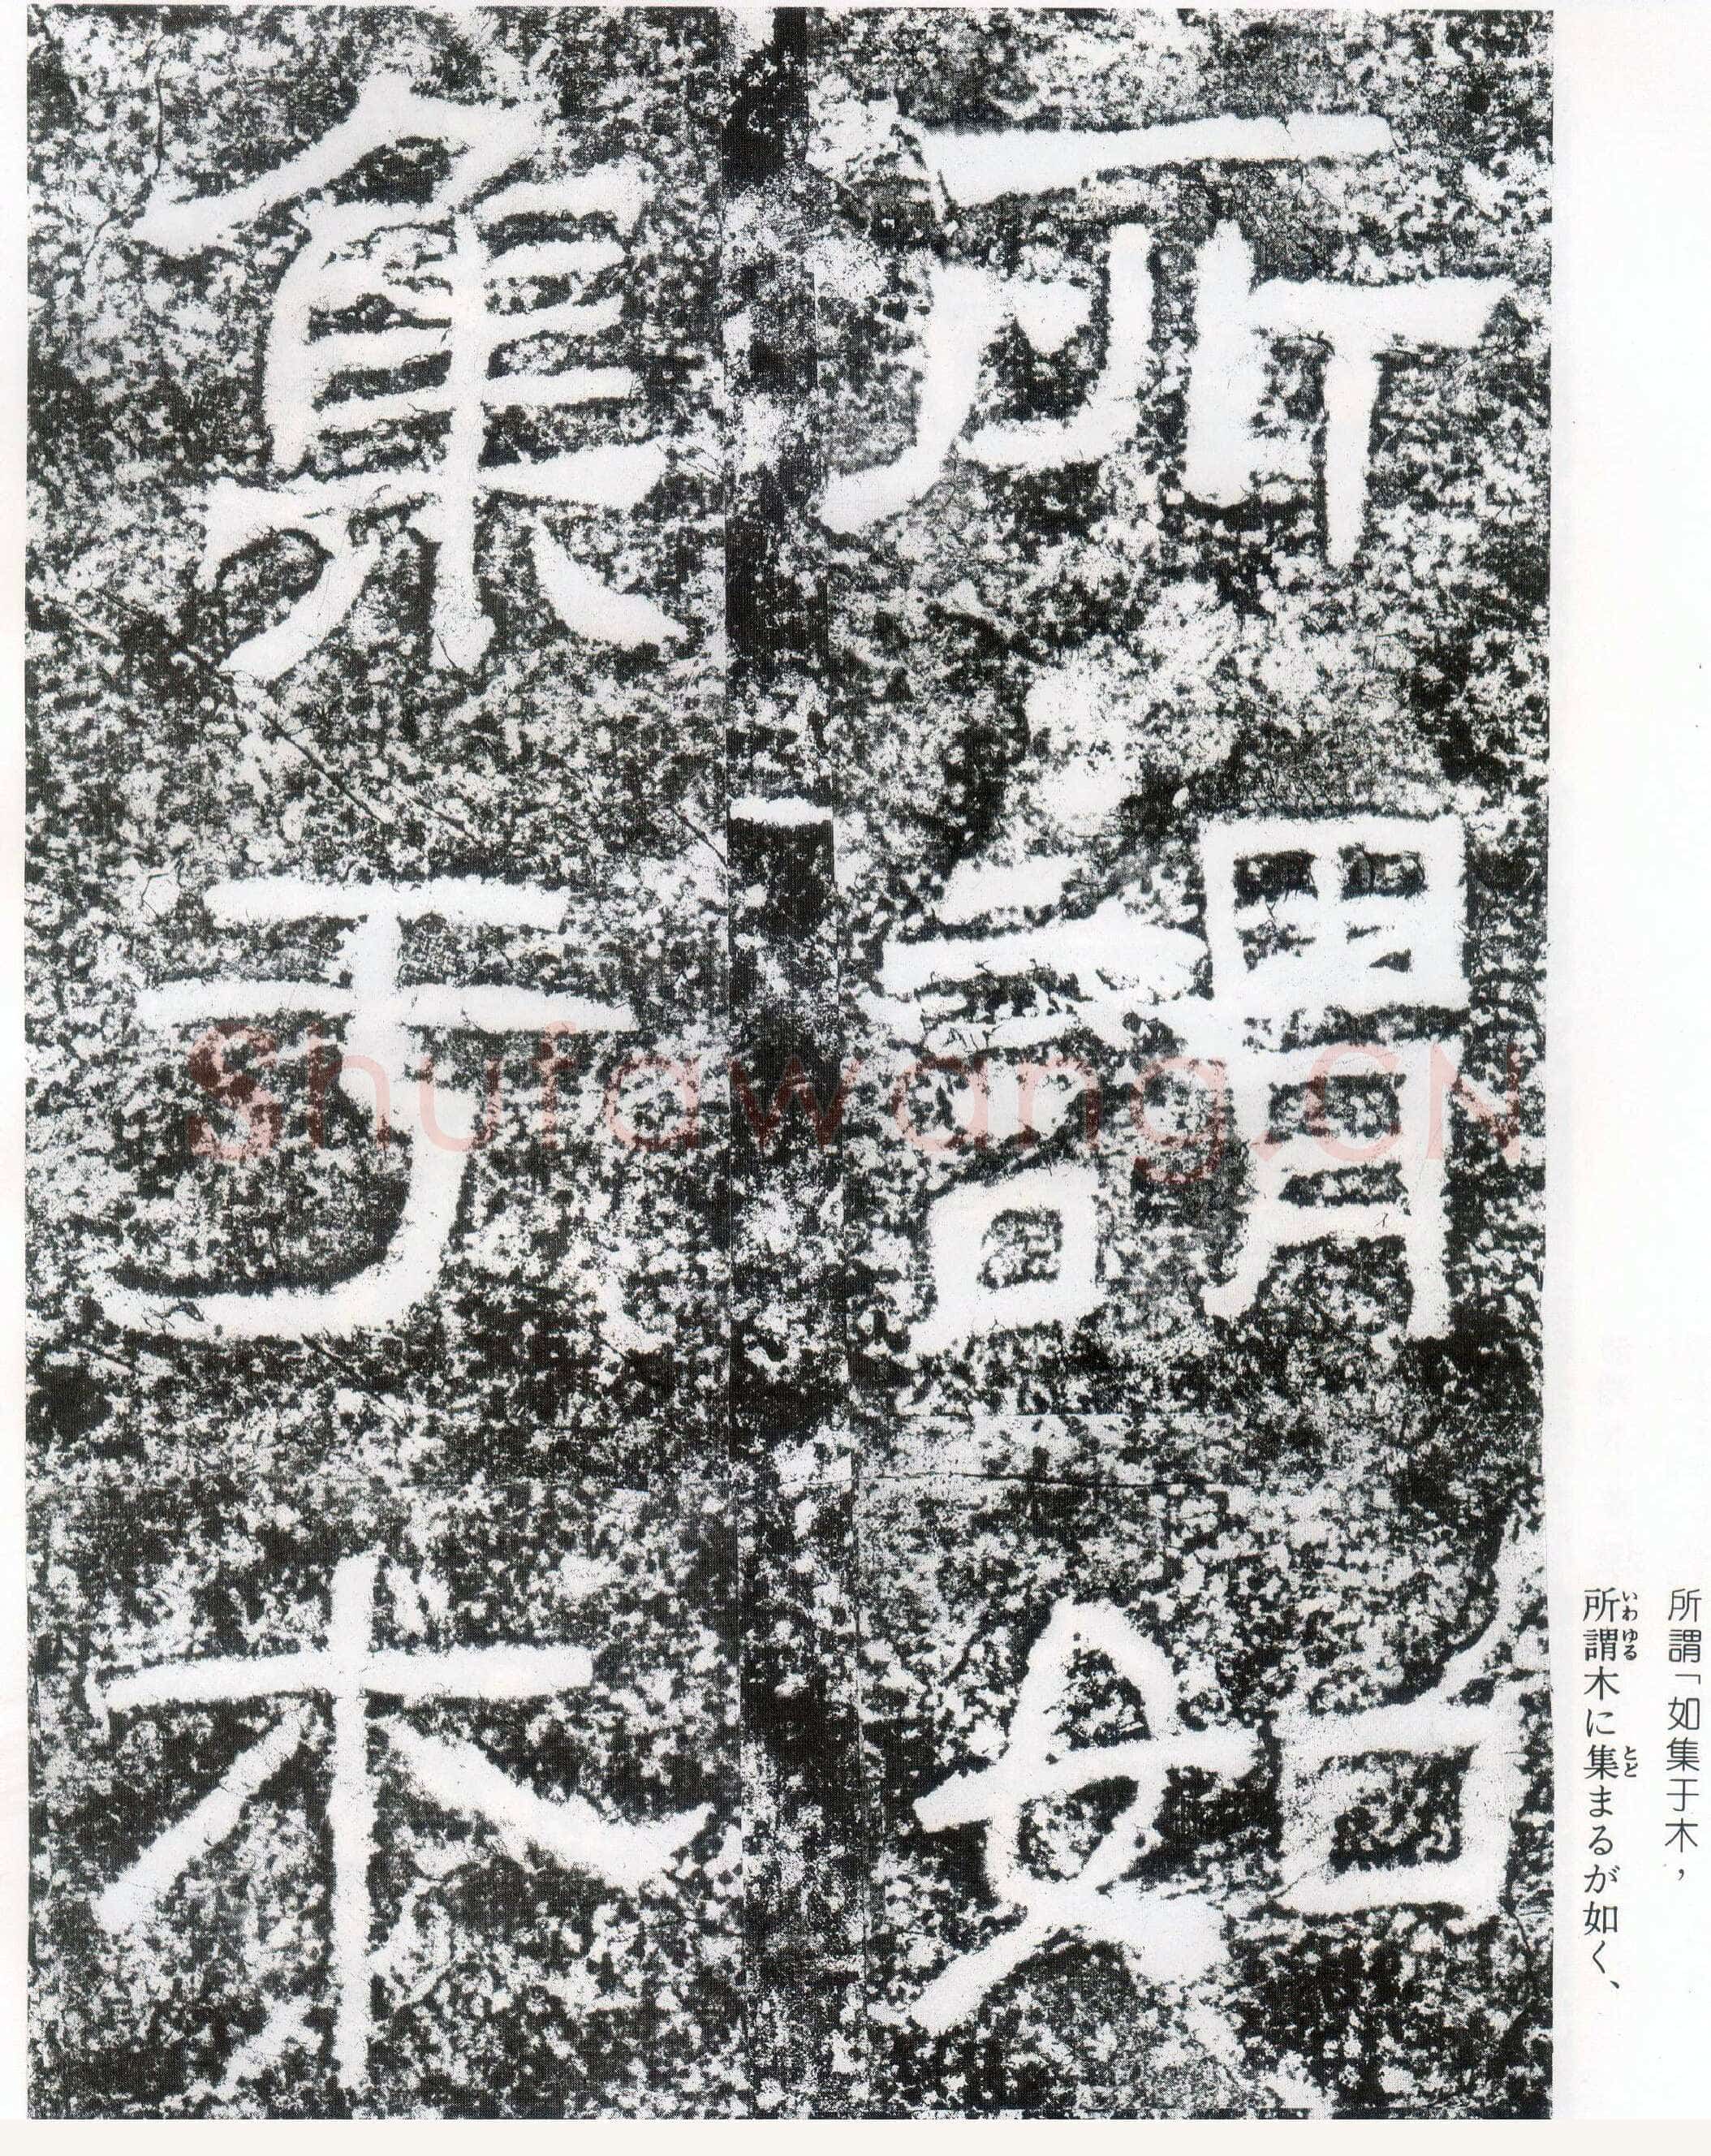 所謂「如集于木，
所謂木に集まるが如く、
いわゆる
とど
所謂如
集于木
Shufawang.CN